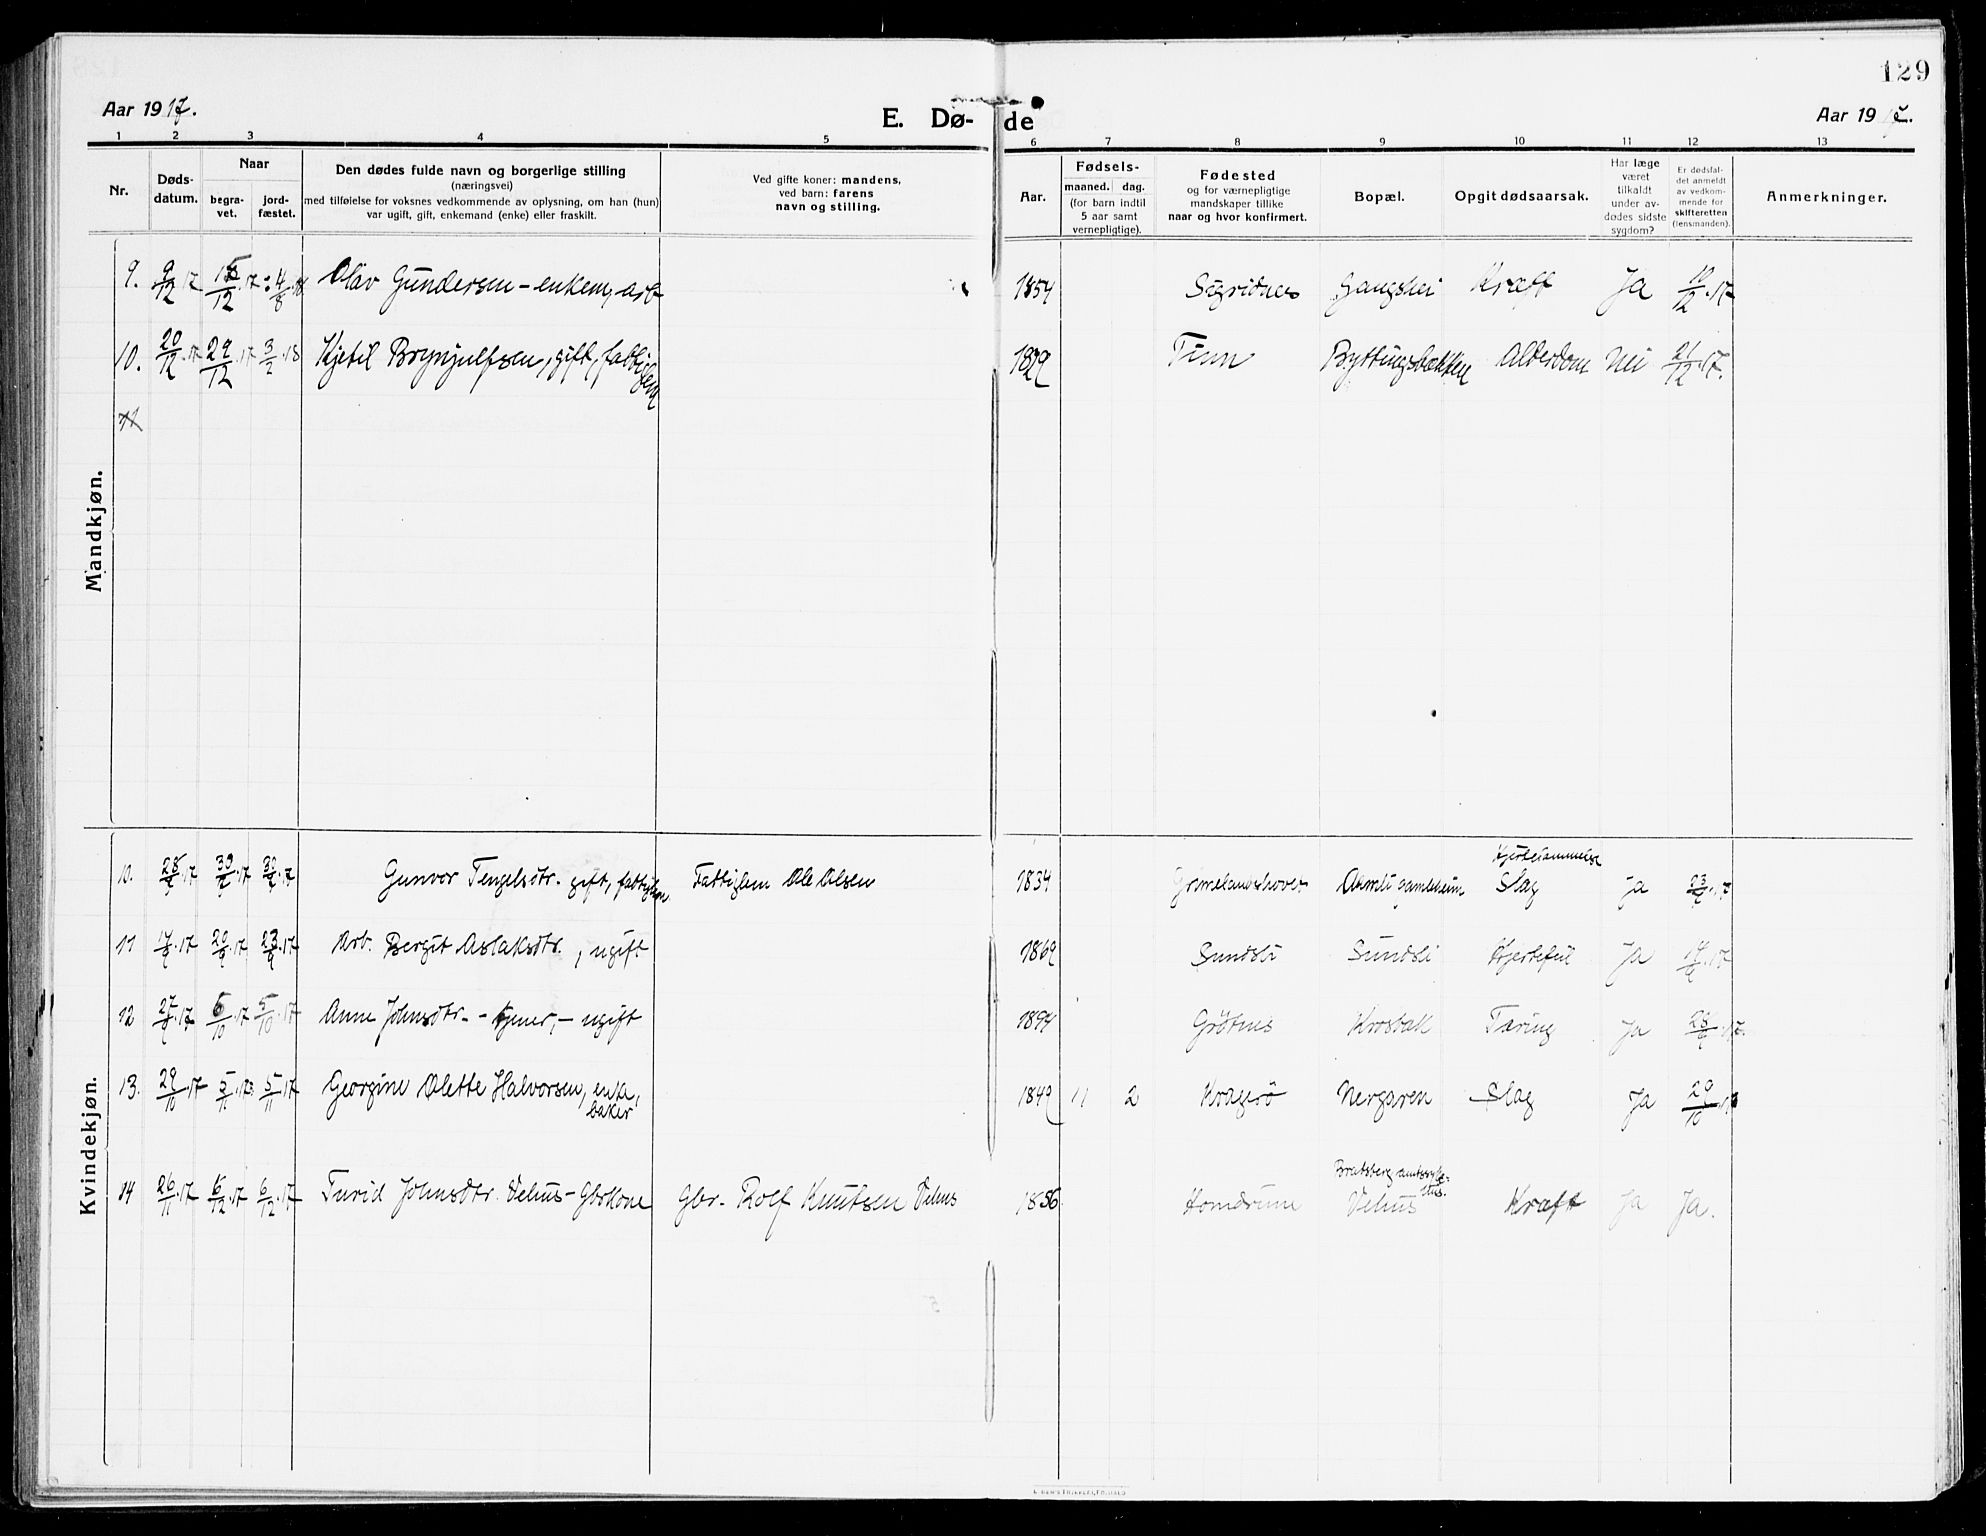 129
Aar 1917.
E. Dø- de
Aar 19
1 2 3 4 5 6 7 8 9 10 11 12 13
Nr.
Døds-
datum.
Naar
begra-
vet.
jord-
fæstet.
Den dødes fulde navn og borgerlige stilling
(næringsvei)
med tilføielse for voksnes vedkommende av oplysning, om han (hun)
var ugift, gift, enkemand (enke) eller fraskilt.
Ved gifte koner: mandens,
ved barn: farens
navn og stilling.
Aar.
Fødsels-
maaned. dag.
(for barn indtil
5 aar samt
vernepligtige).
Fødested
og for værnepligtige
mandskaper tillike
naar og hvor konfirmert.
Bopæl.
Opgit dødsaarsak.
Har læge
været
tilkaldt
under av-
dødes sidste
sygdom?
Er dødsfal-
det anmeldt
av vedkom-
mende for
skifteretten
(lensmanden).
Anmerkninger.
Mandkjøn.
9. 9/12 17 12 17 4 18 Olav Gundersen - enkem, arb 1854 Sigridnes Gangshei Kræft Ja 10/12 17
10. 20/12 17 29/12 17 3/2 18 Kjetil Brynjulfsen, gift, fattiglem 1829 Tinn Byttingsbækken Alderdom Nei 21/12 17.
11
Kvindekjøn.
Hjertelammelse
10. 28 17 30 17 30 17 Gunvor Tengelsdtr. gift, fattiglem Fattiglem Ole Olsen 1834 Slag ja 17
11 17 20/9 17 23/9 17 Arb. Bergit Aslaksdtr., ugift 1869 Sundsli Sundsli Hjertefeil Ja 17
12 27/9 17 5/10 17 5/10 17 Anne Johnsdtr. - tjener, - ugift 1894 Grötnes Krosbak Tæring Ja 28/9 17.
13. 29/10 17 5/11 17 5/11 17 Georgine Olette Halvorsen, enke, 1849 11 2 Kragerö Nergaren Slag Ja 29/10 17
baker
Bratsberg amtssyke-
hus.
14 26/11 17 6/12 17 6/12 17 Turid Johnsdtr. Vehus - Gbrkone Gbr. Rolf Knutsen Vehus 1856 Homdrum Vehus Kræft Ja Ja.